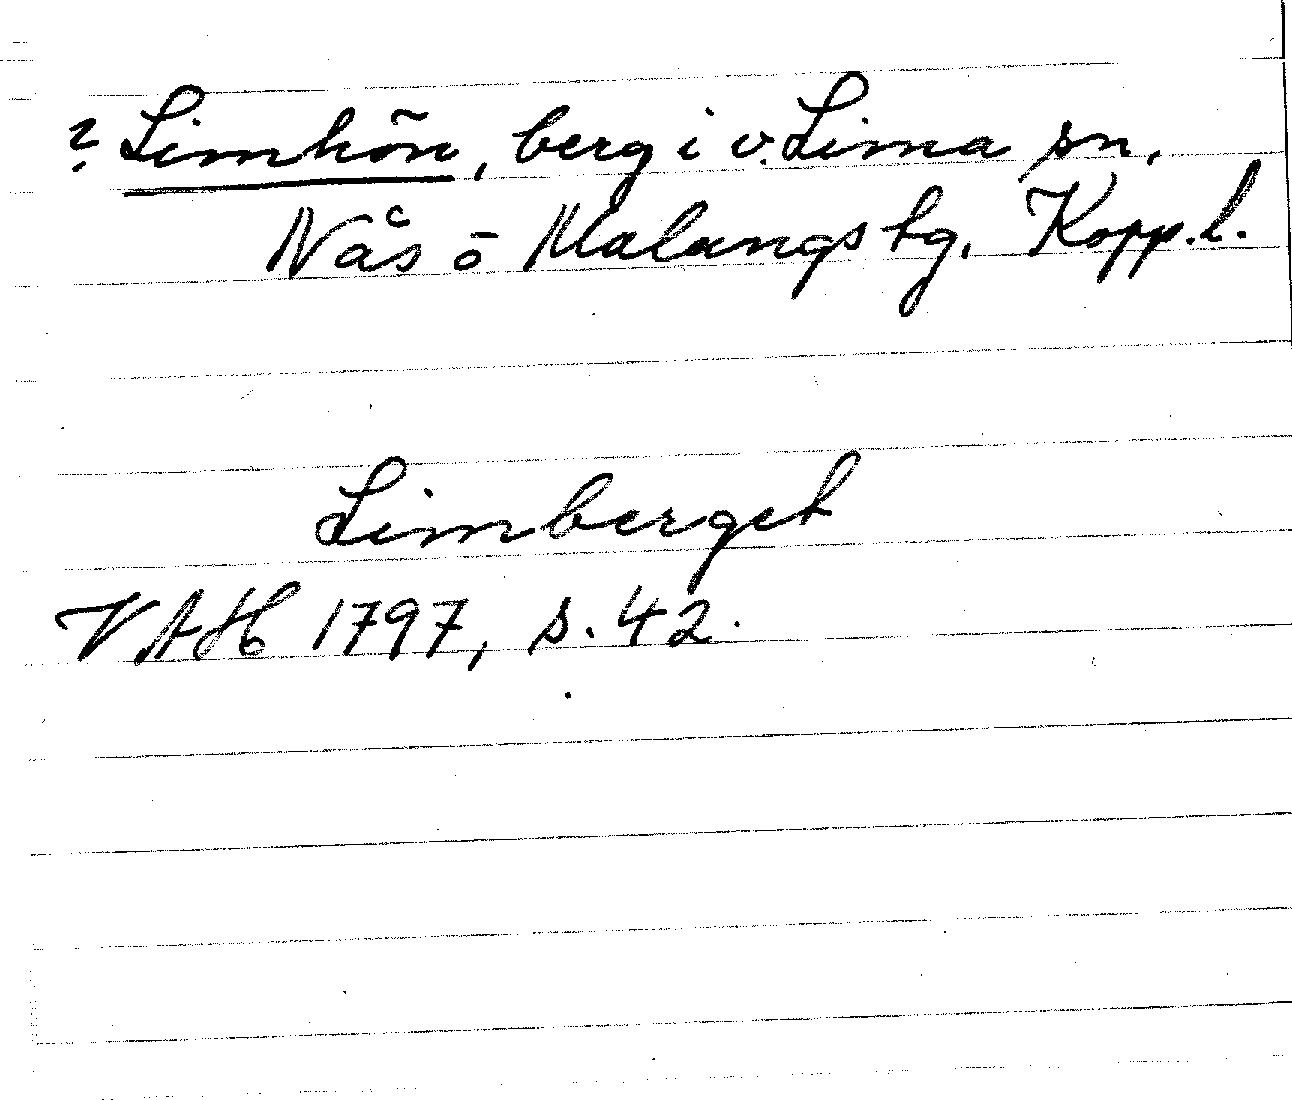 ? Limhōn, berg i v. Lima sn,
Nås ō Malungs tg, Kopp.l.
Limberget
VAH 1797, s. 42.